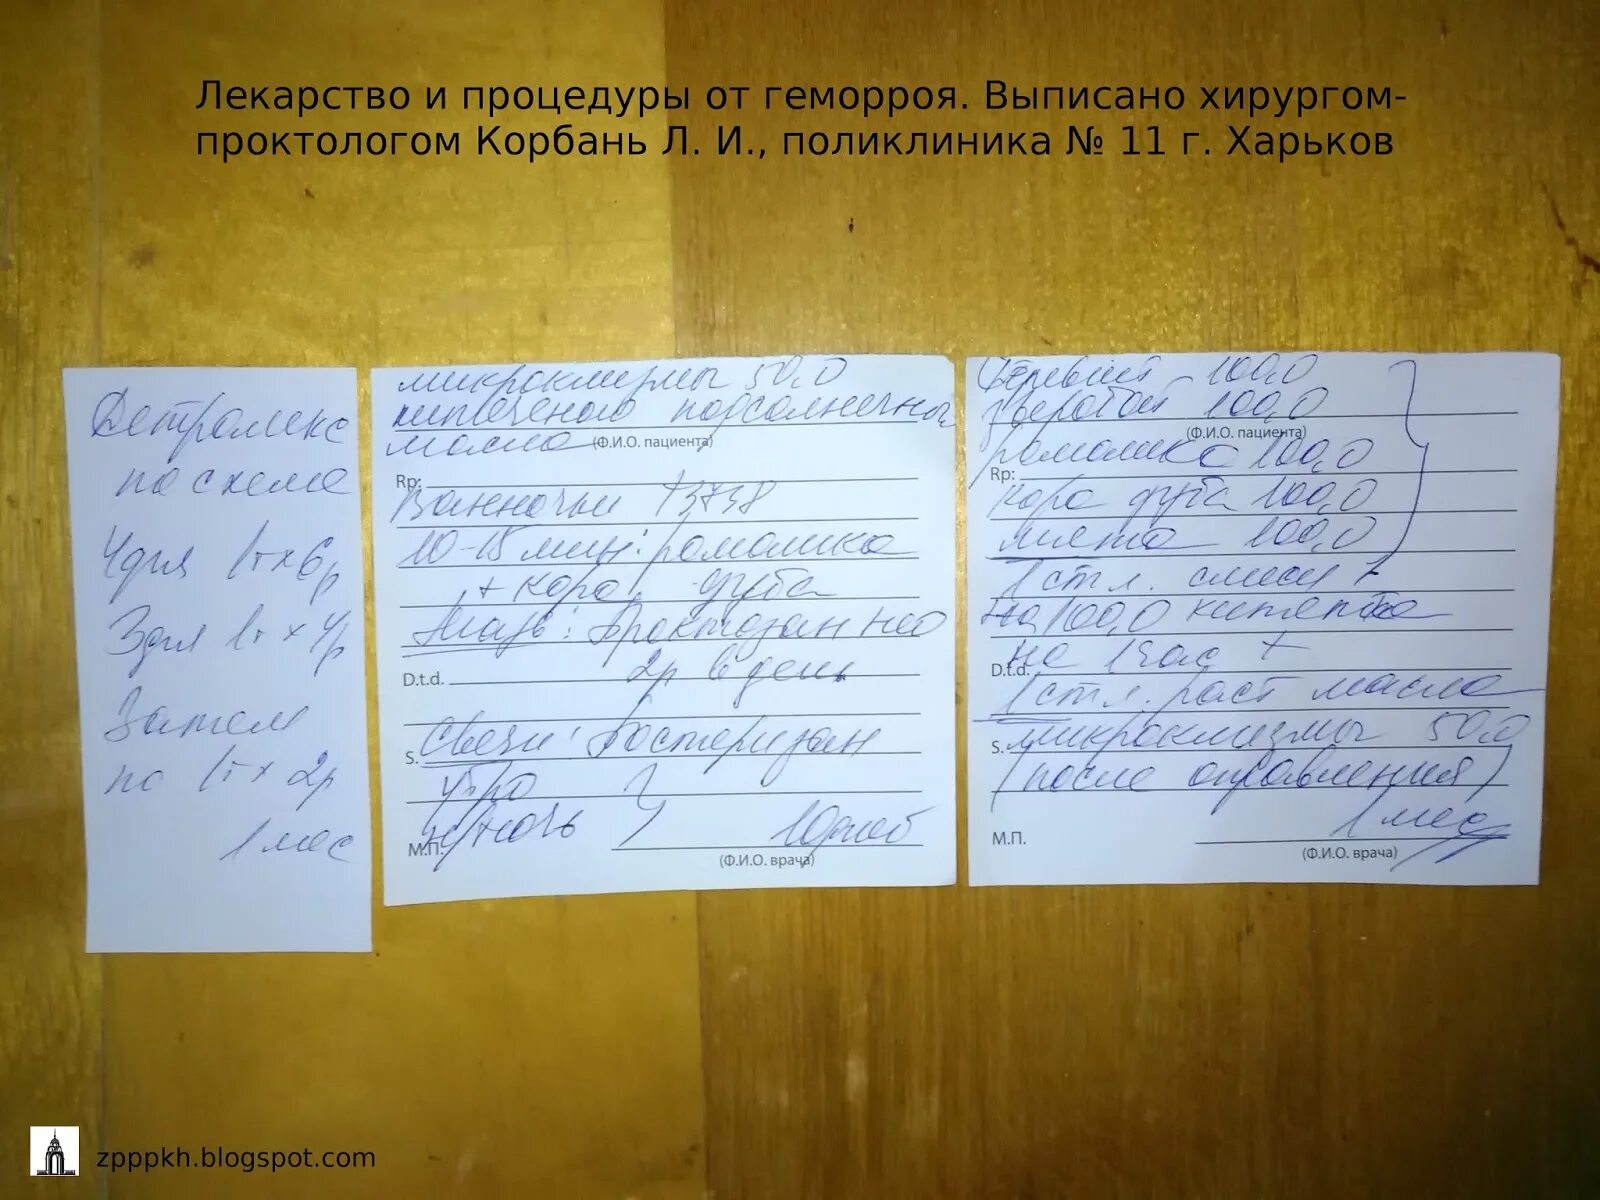 Лекарство и процедуры от геморроя. Выписано хирургом-
проктологом Корбань Л. И., поликлиника № 11 г. Харьков
Детралекс
по схеме
4 дня 1т х 6р
3 дня 1т х 4р
Затем
по 1т х 2р
1 мес
микроклизмы 50,0
кипяченого подсолнечного
масла
(Ф.И.О. пациента)
Rp:
Ванночки t 37-38
10-15 мин: ромашка
+ кора дуба
Мазь: Проктозан нео
D.t.d.
2р в день
S. Свечи: Постеризан
утро
н/ночь
10 дней
М.П.
(Ф.И.О. врача)
100,0
зверобой 100,0
(Ф.И.О. пациента)
ромашка 100,0
Rp:
кора дуба 100,0
мята 100,0
1 ст л. смеси +
на 100,0 кипятка
на 1 час +
D.t.d.
1 ст л. раст масла
S. микроклизмы 50,0
(после оправления)
1 мес
М.П.
(Ф.И.О. врача)
zpppkh.blogspot.com